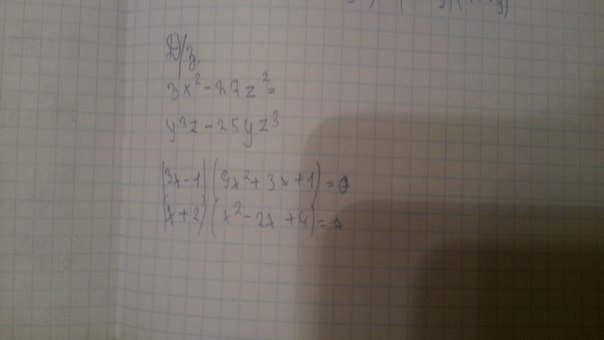 Д/з.
3x²-27z²=
y³z-25yz³
(3x-1)(9x²+3x+1)=0
(x+2)(x²-2x+4)=